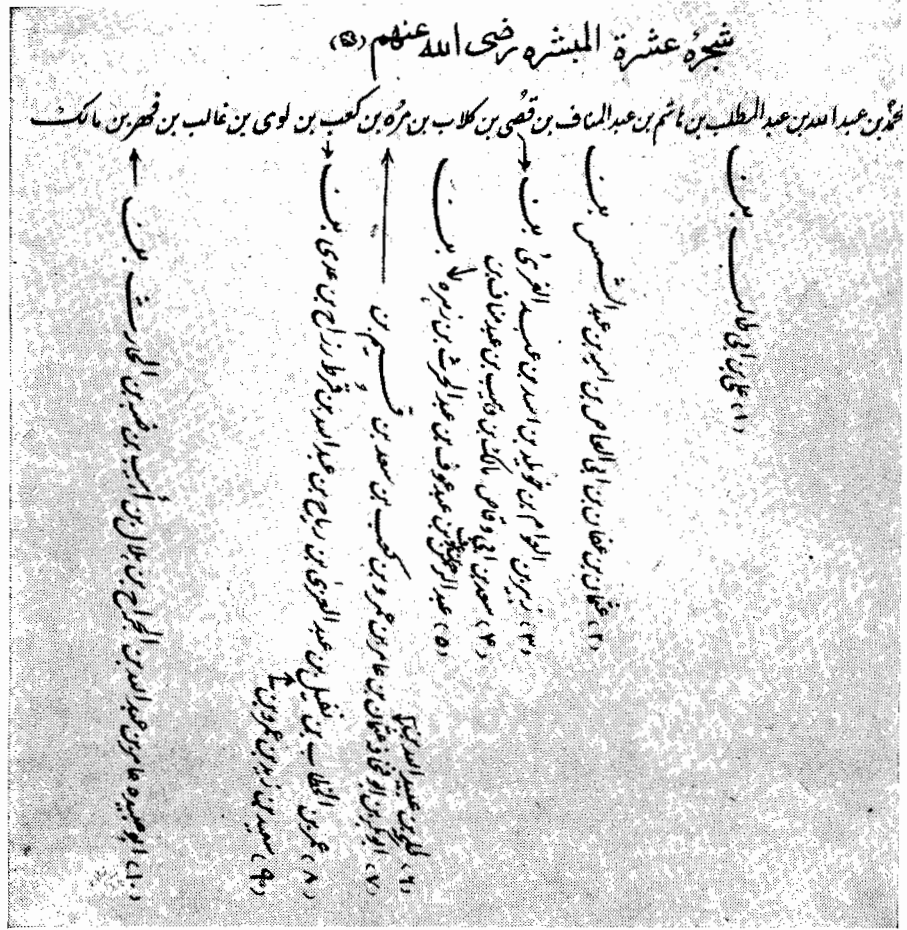 شجرۂ عشرة المبشرہ رضی اللہ عنہم (۵)
محمدؐ بن عبد اللہ بن عبد المطلب بن ہاشم بن عبد المناف بن قصُی بن کلاب بن مرُہ بن کعب بن لوی بن غالب بن فھر بن مالک
(۱) علی بن ابی طالب بن
(۲) عثمان بن عفان بن ابی العاص بن امیہ بن عبد الشمس بن
(۳) زبیر بن العوام بن خویلد بن اسد بن عبد العزیٰ بن
(۴) سعد بن ابی وقاص مالک بن وہیب بن عبد مناف بن
(۵) عبد الرحمٰن بن عوف بن عبد عوف بن عبد الحرث بن زہرہ بن
(۶) طلحہ بن عبید اللہ بن
(۷) ابوبکر بن ابو قحافہ عثمان بن عامر بن عمرو بن کعب بن سعد بن تیم بن
(۸) عمر بن الخطاب بن نفیل بن عبد العزیٰ بن ریاح بن عبد اللہ بن قرط رزاح بن عدی بن
(۹) سعید بن زید بن عمرو بن
(۱۰) ابو عبیدہ عامر بن عبد اللہ بن الجراح بن ہلال بن اُہیب بن ضبہ بن الحارث بن